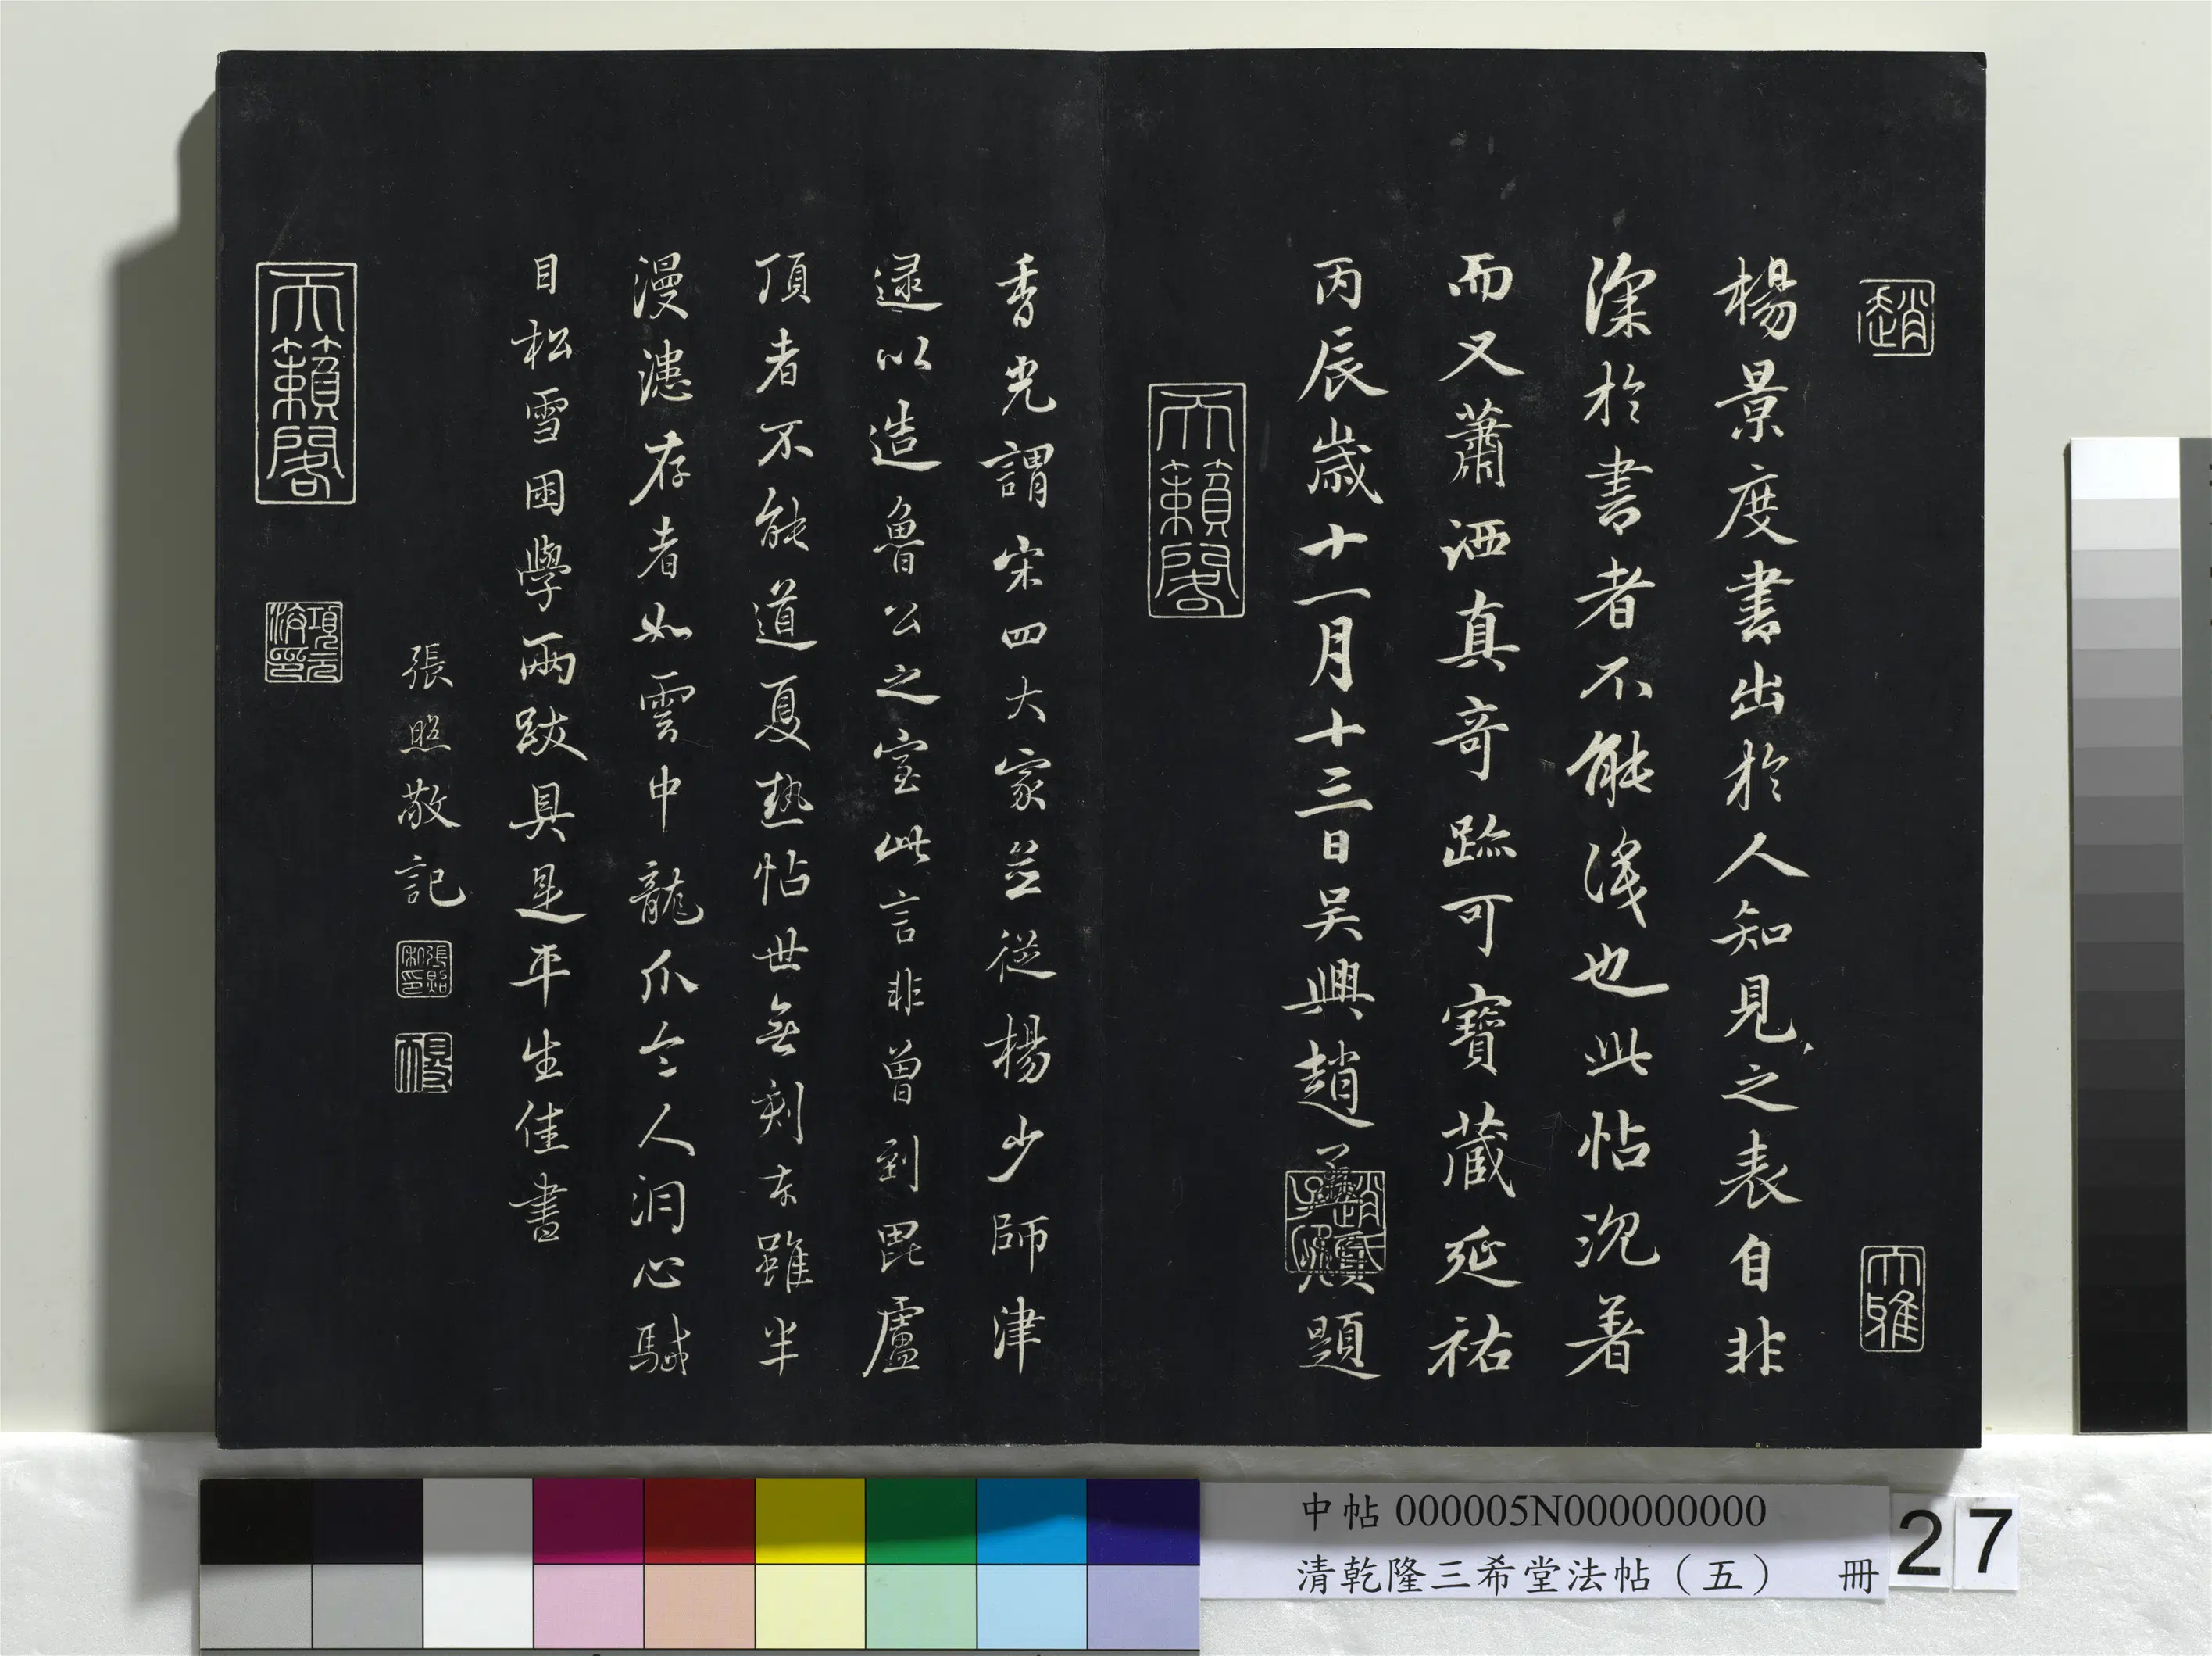 趙
大雅
楊景度書出於人知見之表自非
深於書者不能淺也此帖沉著
而又蕭洒真奇跡可寶藏延祐
丙辰歲十一月十三日吴興趙孟頫題
趙氏子昂
天籟閣
香光謂宋四大家並從楊少師津
逮以造魯公之室此言非曾到毘盧
頂者不能道夏熱帖世無刻本雖半
漫漶存者如雲中龍爪令人洞心駴
目松雪困學兩跋具是平生佳書
張照敬記
張照私印
天籟閣
項元汴印
中帖 000005N000000000
清乾隆三希堂法帖（五） 冊
27